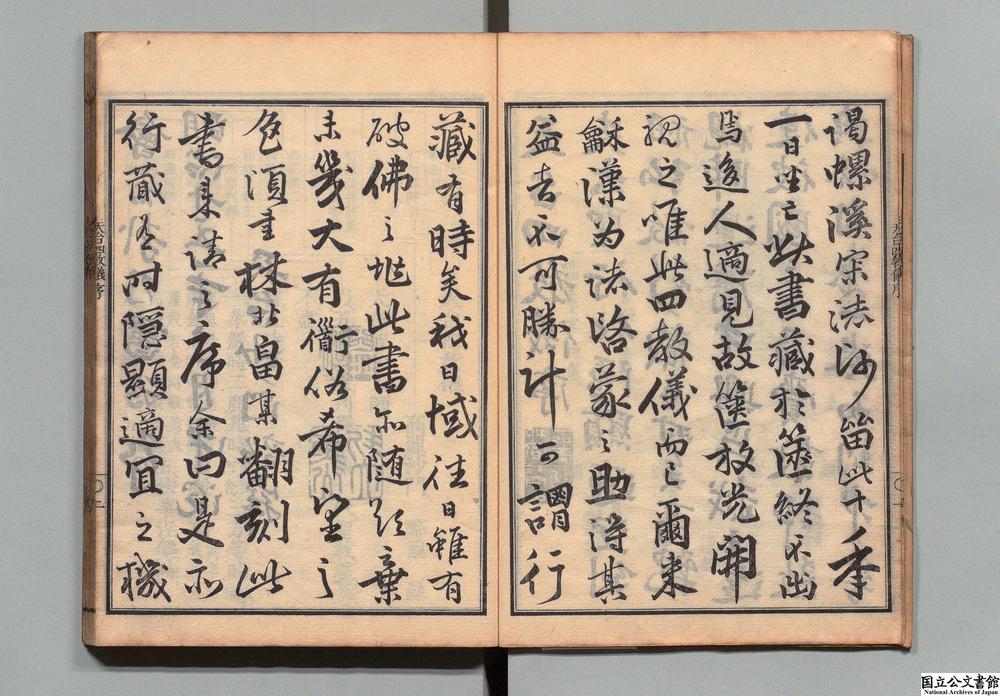 謁螺溪宗法沙留此十季
一日坐亡此書藏於篋終不出
焉後人適見故篋放光開
視之唯此四教儀而已爾来
龢漢为法啓蒙之助得其
益者不可勝计可謂行
藏有時矣我日域往日雖有
破佛之地此書亦随於棄
未幾大有衢俗希望之
色須書林北畠某翻刻此
書来請之序余曰是亦
行藏有时隠顕適宜之機
天台四教儀序
国立公文書館
National Archives of Japan